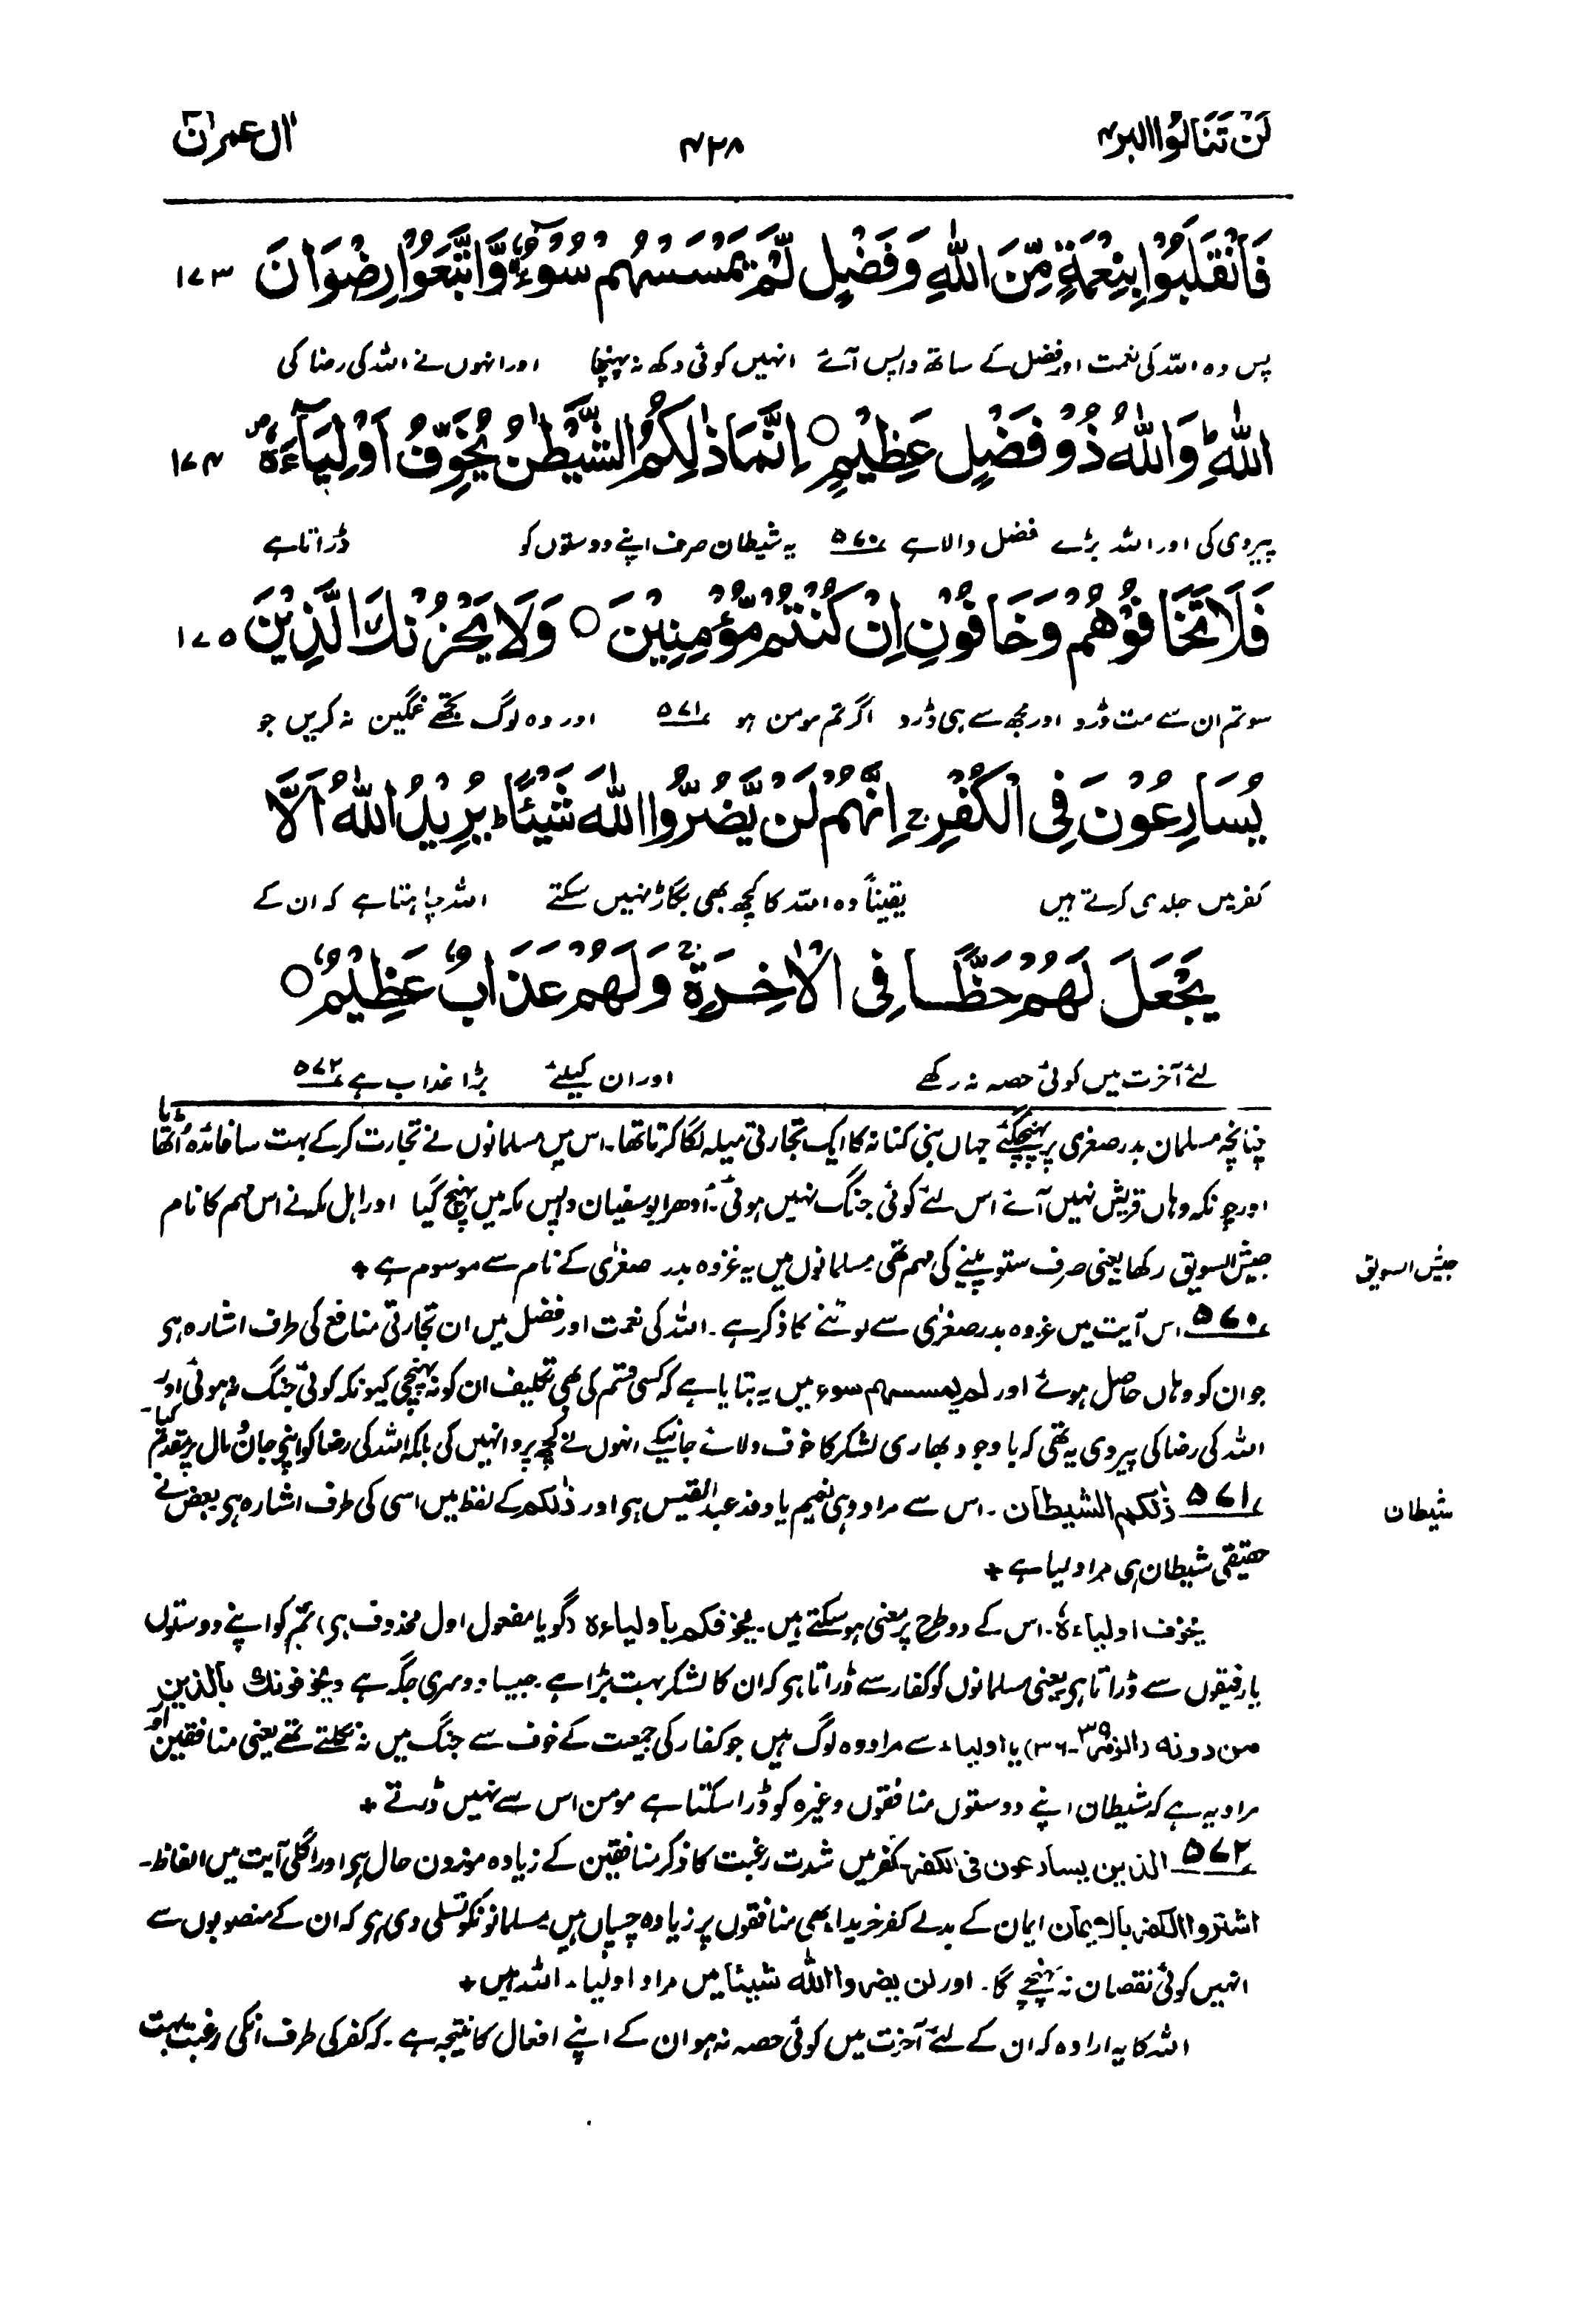 لَنْ تَنَالُوا البر ۴
۴۲۸
اٰل عمرٰن ۳
فَانْقَلَبُوْا بِنِعْمَةٍ مِّنَ اللّٰهِ وَفَضْلٍ لَّمْ يَمْسَسْهُمْ سُوْٓءٌ ۙ وَّاتَّبَعُوْا رِضْوَانَ ۱۷۳
پس وہ اللہ کی نعمت اور فضل کے ساتھ واپس آئے انہیں کوئی دکھ نہ پہنچا اور انہوں نے اللہ کی رضا کی
اللّٰهِ ؕ وَاللّٰهُ ذُوْ فَضْلٍ عَظِيْمٍ ○ اِنَّمَا ذٰلِكُمُ الشَّيْطٰنُ يُخَوِّفُ اَوْلِيَآءَهٗ ۪ ۱۷۴
پیروی کی اور اللہ بڑے فضل والا ہے ۵۷۰؎ یہ شیطان صرف اپنے دوستوں کو ڈراتا ہے
فَلَا تَخَافُوْهُمْ وَخَافُوْنِ اِنْ كُنْتُمْ مُّؤْمِنِيْنَ ○ وَلَا يَحْزُنْكَ الَّذِيْنَ ۱۷۵
سو تم ان سے مت ڈرو اور مجھ سے ہی ڈرو اگر تم مومن ہو ۵۷۱؎ اور وہ لوگ تجھے غمگین نہ کریں جو
يُسَارِعُوْنَ فِى الْكُفْرِ ۚ اِنَّهُمْ لَنْ يَّضُرُّوا اللّٰهَ شَيْئًا ؕ يُرِيْدُ اللّٰهُ اَلَّا
کفر میں جلدی کرتے ہیں یقیناً وہ اللہ کا کچھ بھی بگاڑ نہیں سکتے اللہ چاہتا ہے کہ ان کے
يَجْعَلَ لَهُمْ حَظًّا فِى الْاٰخِرَةِ ۚ وَلَهُمْ عَذَابٌ عَظِيْمٌ ○
لئے آخرت میں کوئی حصہ نہ رکھے اور ان کیلئے بڑا عذاب ہے ۵۷۲؎
چنانچہ مسلمان بدر صغریٰ پر پہنچ گئے جہاں بنی کنانہ کا ایک تجارتی میلہ لگا کرتا تھا۔ اس میں مسلمانوں نے تجارت کرکے بہت سا فائدہ اُٹھایا
اور چونکہ وہاں قریش نہیں آئے اس لئے کوئی جنگ نہیں ہوئی۔ اُدھر ابوسفیان واپس مکہ میں پہنچ گیا اور اہل مکہ نے اس مہم کا نام
جیش السویق رکھا یعنی صرف ستو پینے کی مہم تھی مسلمانوں میں یہ غزوہ بدر صغریٰ کے نام سے موسوم ہے +
جیش السویق
۵۷۰؎ اس آیت میں غزوہ بدر صغریٰ سے لوٹنے کا ذکر ہے۔ اللہ کی نعمت اور فضل میں ان تجارتی منافع کی طرف اشارہ ہی
جو ان کو وہاں حاصل ہوئے اور لم یمسسہم سوء میں یہ بتایا ہے کہ کسی قسم کی بھی تکلیف ان کو نہ پہنچی کیونکہ کوئی جنگ نہ ہوئی اور
اللہ کی رضا کی پیروی یہ تھی کہ باوجود بھاری لشکر کا خوف دلائے جانیکے انہوں نے کچھ پروا نہیں کی بلکہ اللہ کی رضا کو اپنی جان و مال پر مقدم کیا۔
۵۷۱؎ ذٰلکم الشیطان۔ اس سے مراد وہی نعیم یا وفد عبدالقیس ہی اور ذٰلکم کے لفظ میں اسی کی طرف اشارہ ہی بعض نے
شیطان
حقیقی شیطان ہی مراد لیا ہے +
یخوف اولیاءہٗ۔ اس کے دو طرح پر معنی ہو سکتے ہیں۔ یخوفکم باولیاءہ (گویا مفعول اول محذوف ہی) تم کو اپنے دوستوں
یا رفیقوں سے ڈراتا ہی یعنی مسلمانوں کو کفار سے ڈراتا ہی کہ ان کا لشکر بہت بڑا ہے۔ جیسا دوسری جگہ ہے ویخوفونك بالذین
من دونه (الزمر ۳۹-۳۶) یا اولیاء سے مراد وہ لوگ ہیں جو کفار کی جمیعت کے خوف سے جنگ میں نہ نکلتے تھے یعنی منافقین اور
مراد یہ ہے کہ شیطان اپنے دوستوں منافقوں وغیرہ کو ڈرا سکتا ہے مومن اس سے نہیں ڈرتے +
۵۷۲؎ الذین یسارعون فی الکفر۔ کفر میں شدت رغبت کا ذکر منافقین کے زیادہ موزون حال ہی اور اگلی آیت میں الفاظ۔
اشتروا الکفر بالایمان ایمان کے بدلے کفر خریدا، بھی منافقوں پر زیادہ چسپاں ہیں مسلمانوں کو تسلی دی ہی کہ ان کے منصوبوں سے
انہیں کوئی نقصان نہ پہنچے گا۔ اور لن یضروا اللّٰہ شیئا میں مراد اولیاء اللہ ہیں +
اللہ کا یہ ارادہ کہ ان کے لئے آخرت میں کوئی حصہ نہ ہو ان کے اپنے افعال کا نتیجہ ہے۔ کہ کفر کی طرف انکی رغبت بہت